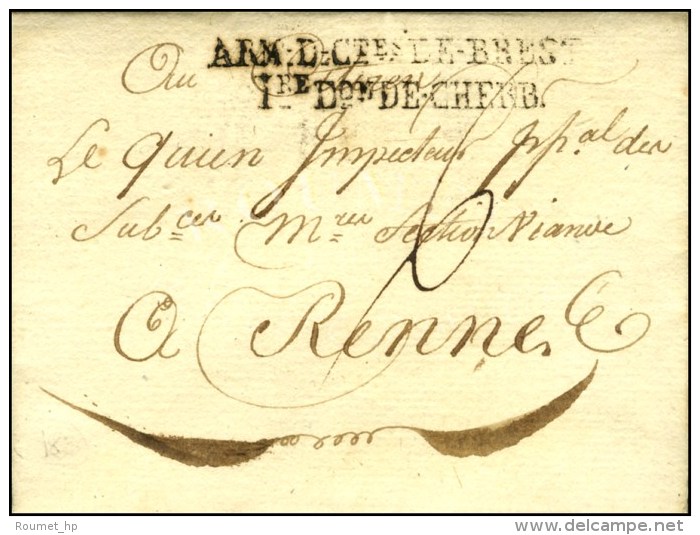 ARM. D. CTES DE-BREST
Au Citoyen
1RE DON DE-CHERB.
Le Quien Inspecteur pp.al des
Subces Mres Section Viande
6
A Rennes
Roumet_hp
www.delcampe.net